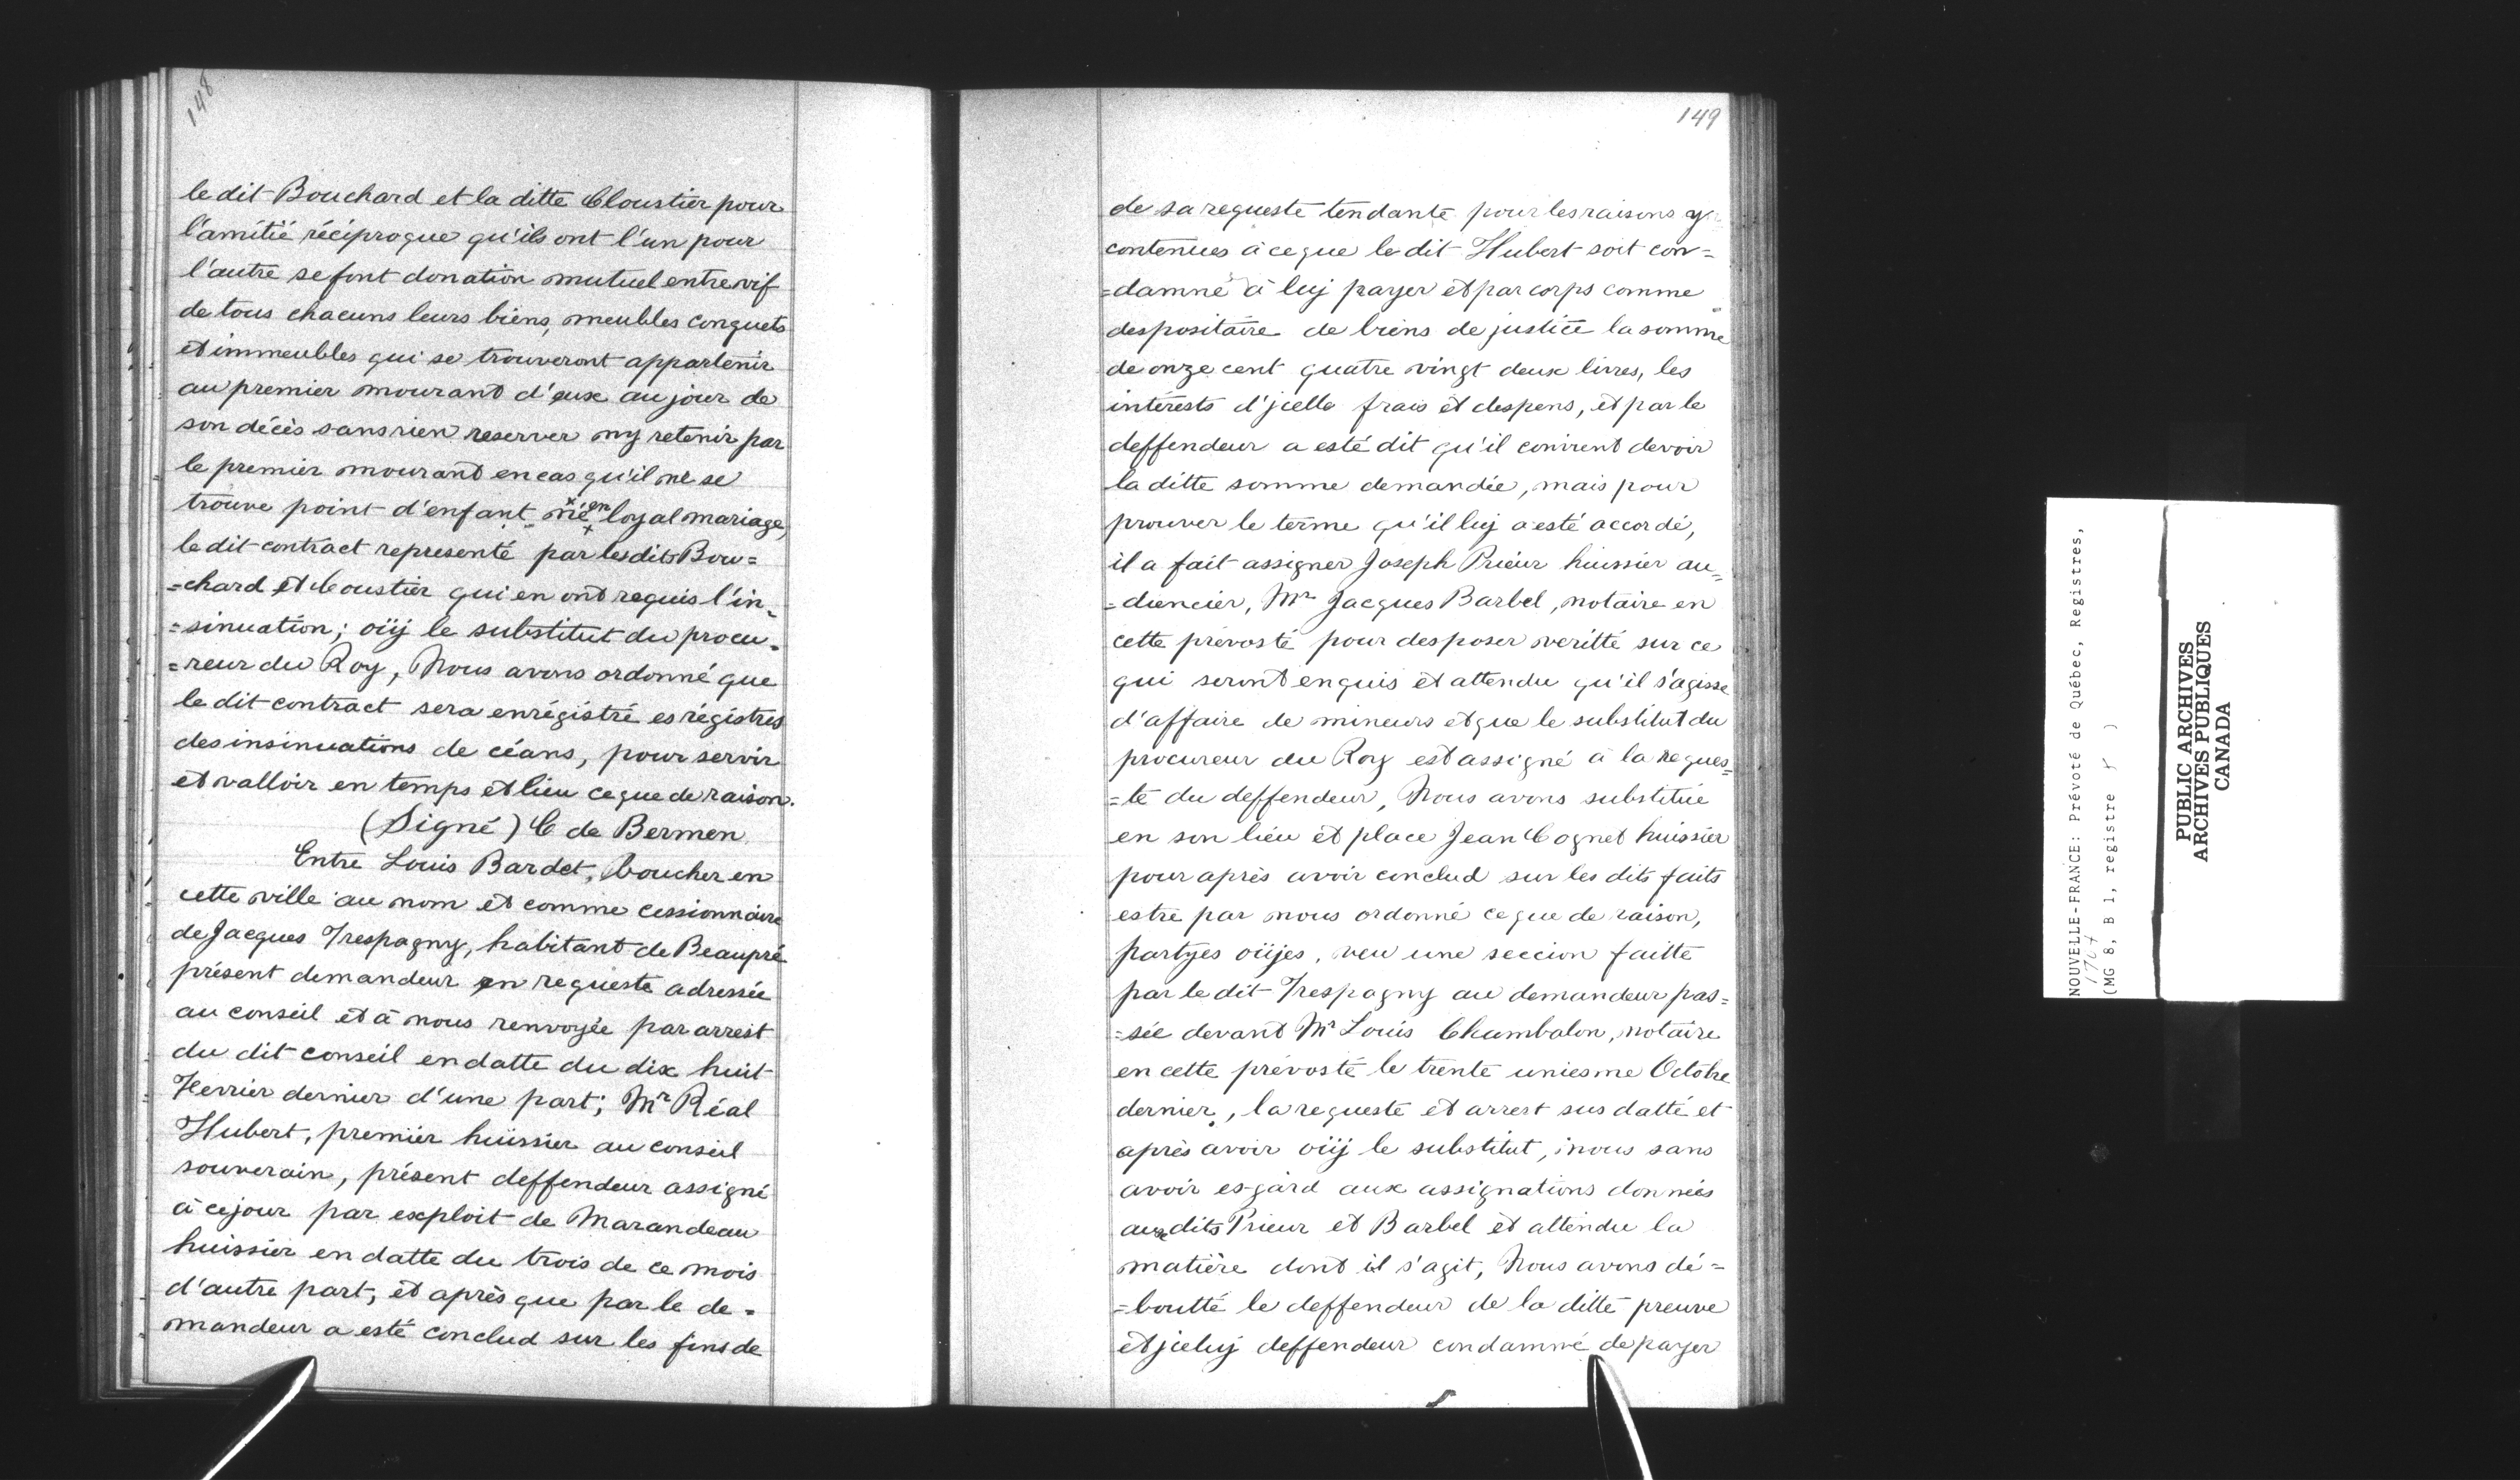 148
le dit Bouchard et la ditte Cloustier pour
l'amitié réciproque qu'ils ont l'un pour
l'autre se font donation mutuel entre vif
de tous chacuns leurs biens, meubles conquets
et immeubles qui se trouveront appartenir
au premier mourant d'eux au jour de
son décès sans rien reserver ny retenir par
le premier mourant en cas qu'il ne se
trouve point d'enfant né en loyal mariage,
le dit contract representé par les dits Bou=
=chard et Cloustier qui en ont requis l'in=
=sinuation; oüy le substitut du procu=
=reur du Roy, Nous avons ordonné que
le dit contract sera enrégistré es régistres
des insinuations de céans, pour servir
et valloir en temps et lieu ce que de raison.
(Signé) C de Bermen
Entre Louis Bardet, boucher en
cette ville au nom et comme cessionnaire
de Jacques Trespagny, habitant de Beaupré
présent demandeur en requeste adressée
au conseil et à nous renvoyée par arrest
du dit conseil en datte du dix huit
Fevrier dernier d'une part; Mr Réal
Hubert, premier huissier au conseil
souverain, présent deffendeur assigné
à ce jour par exploit de Marandeau
huissier en datte du trois de ce mois
d'autre part, et après que par le de=
mandeur a esté conclud sur les fins de
149
de sa requeste tendante pour les raisons y
contenues à ce que le dit Hubert soit con=
=damné à luy payer et par corps comme
despositaire de biens de justice la somme
de onze cent quatre vingt deux livres, les
intérests d'jcelle frais et despens, et par le
deffendeur a esté dit qu'il convient devoir
la ditte somme demandée, mais pour
prouver le terme qu'il luy a esté accordé,
il a fait assigner Joseph Prieur huissier au=
=diencier, Mr Jacques Barbel, notaire en
cette prévosté pour desposer veritté sur ce
qui seront enquis et attendu qu'il s'agisse
d'affaire de mineurs et que le substitut du
procureur du Roy est assigné à la reques=
=te du deffendeur, Nous avons substitué
en son lieu et place Jean Cognet huissier
pour après avoir conclud sur les dits faits
estre par nous ordonné ce que de raison,
partyes oüjes, veu une seccion faitte
par le dit Trespagny au demandeur pas=
=sée devant Mr Louis Chambalon, notaire
en cette prévosté le trente uniesme Octobre
dernier, la requeste et arrest sus datté et
après avoir oüy le substitut, nous sans
avoir esgard aux assignations données
aux dits Prieur et Barbel et attendu la
matière dont il s'agit, Nous avons dé=
=boutté le deffendeur de la ditte preuve
et jceluy deffendeur condamné de payer
NOUVELLE-FRANCE: Prévoté de Québec, Registres,
1707
(MG 8, B 1, registre )
PUBLIC ARCHIVES
ARCHIVES PUBLIQUES
CANADA